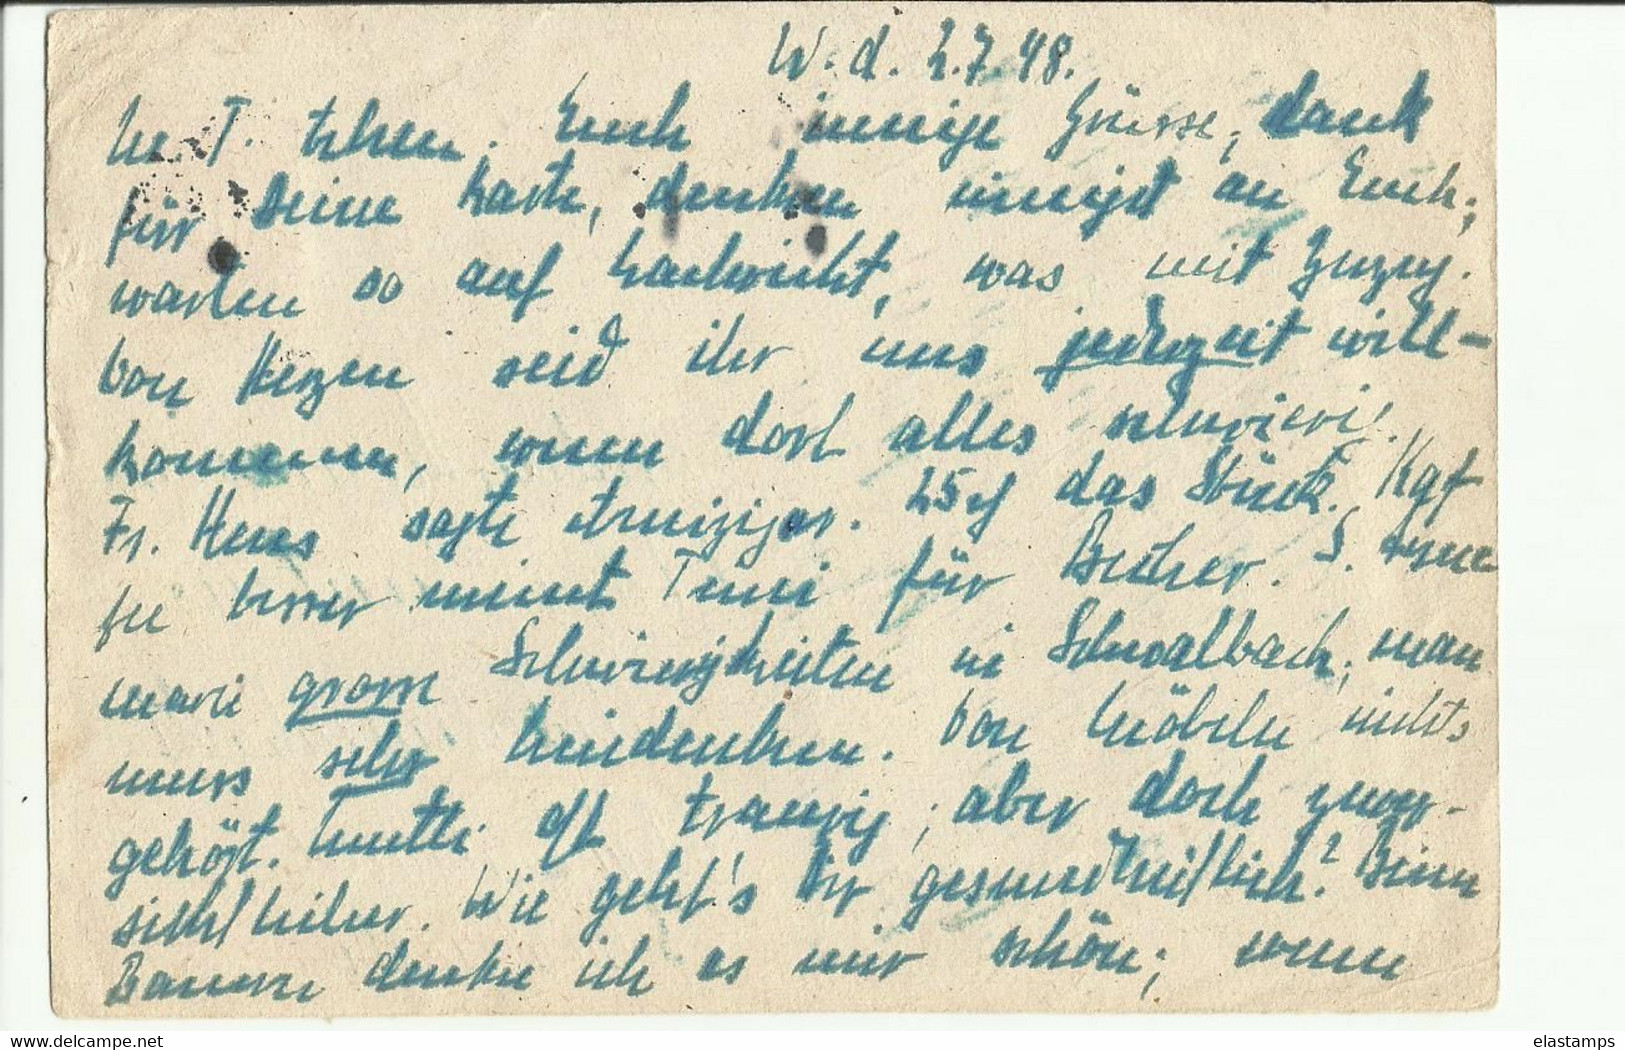 W. d. 2.7.48.
M. T. Euch innige Grüsse, dank
für Deine Karte, denken innigst an Euch;
warten so auf Nachricht, was mit Zuzug.
Von Herzen seid ihr uns jederzeit will-
kommen, wenn dort alles schwierig.
Fr. Heus sagte 25 das Stück. Kgf
besser meint für Bücher. S. Anne
marie grosse Schwierigkeiten in Schwalbach, man
muss sehr . Von Möbeln nichts
gehört. Mutti oft traurig, aber doch zuver-
sichtlicher. Wie geht's Dir gesundheitlich? Beim
Bauern denke ich es mir schön; wenn
elastamps